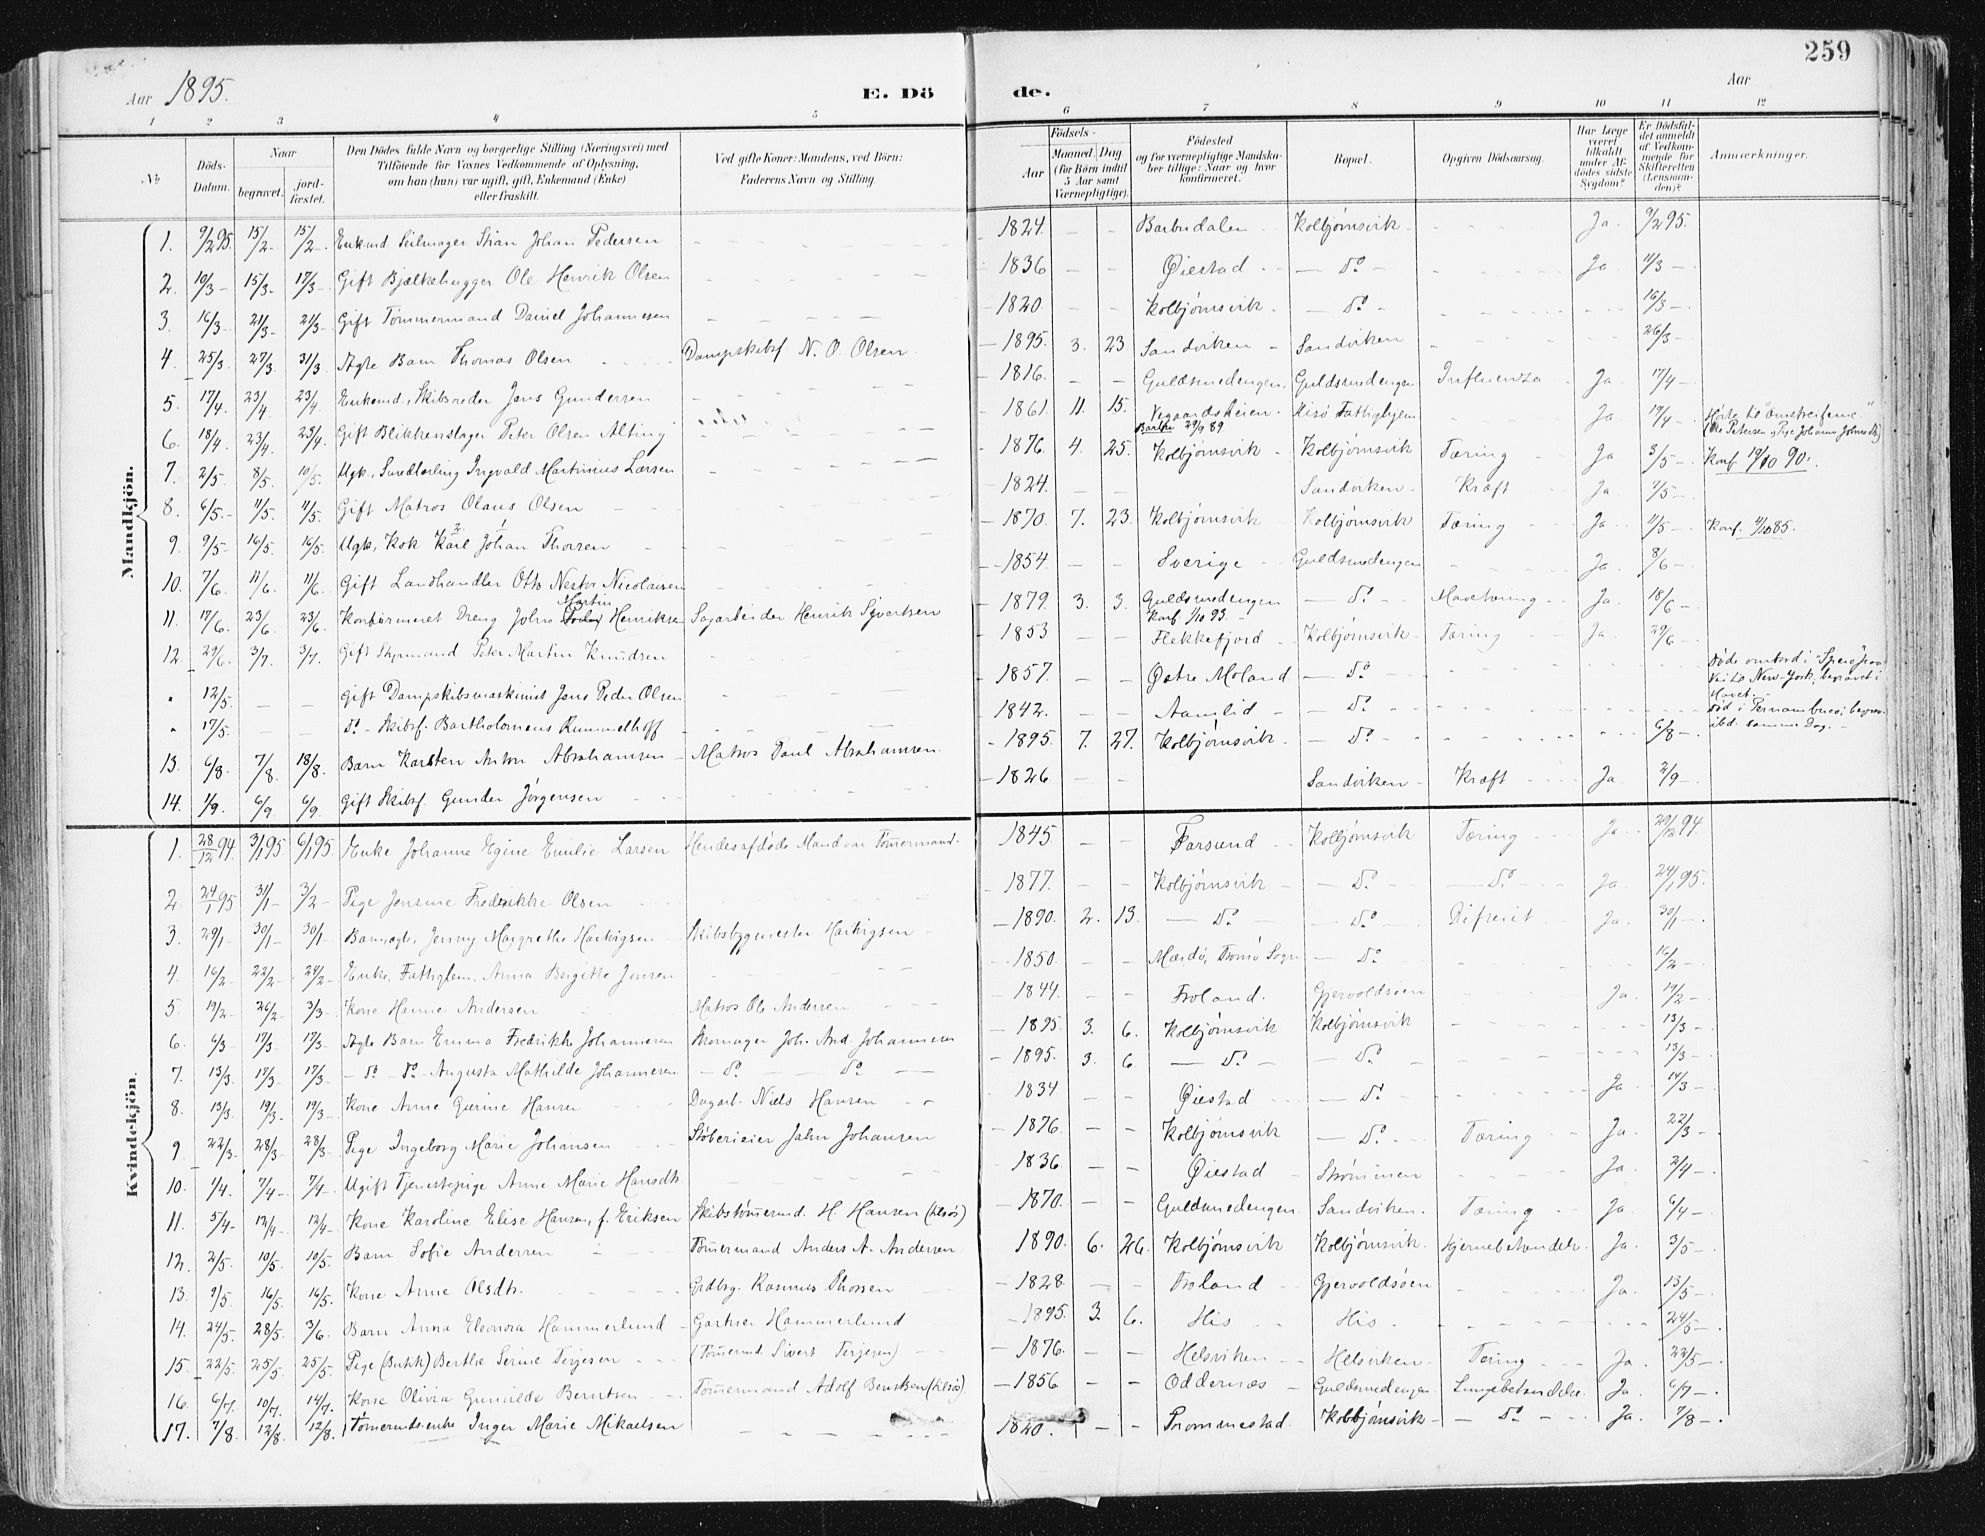 259
Aar 1895.
E. Dö
de.
Aar
1 2 3 4 5
6 7 8 9 10 11 12
No
Döds-Datum.
Naar
begravet.
jord-fæstet.
Den Dödes fulde Navn og borgerlige Stilling (Næringsvei) med
Tilföiende for Voxnes Vedkommende af Oplysning,
om han (hun) var ugift, gift, Enkemand (Enke)
eller fraskilt.
Ved gifte Koner: Mandens, ved Börn:
Faderens Navn og Stilling.
Födsels-
Aar
Maaned. Dag
(for Börn indtil 5 Aar samt Værnepligtige).
Födested
og for værnepligtige Mandskaber tillige: Naar og hvor konfirmeret.
Bopæl.
Opgiven Dödsaarsag.
Har Læge været tilkaldt under Afdödes sidste Sygdom?
Er Dödsfaldet anmeldt af Vedkommende for Skifteretten (Lensmanden)?
Anmærkninger.
Mandkjön.
1. 9/2 95. 15/2 - 15/2 - Enkemd Seilmager Stian Johan Pedersen 1824. Barbudalen Kolbjørnsvik Ja. 9/2 95.
2. 10/3 - 15/3 - 17/3 - Gift Bjælkehugger Ole Henrik Olsen 1836 Øiestad - do - Ja 11/3 -
3. 16/3 - 21/3 - 21/3 - Gift Tømmermand Daniel Johannesen 1820. Kolbjørnsvik - do - 16/3 -
4. 25/3 - 27/3 - 31/3 Ægte Barn Thomas Olsen Dampskibsf. N. O. Olsen 1895. 3. 23 Sandviken Sandviken 26/3 -
5. 17/4 - 23/4. 23/4. Enkemd. Skibsreder Jens Gundersen 1816. Guldsmedengen. Guldsmedengen Influenza Ja 17/4 -
6. 18/4. 23/4 - 25/4. Gift Blikkenslager Peter Olsen Alting 1861. 11. 15. Hisö Fattighjem Ja 19/4 -
7. 2/5. 8/5. 10/5. Ugk. Ingvald Martinius Larsen 1876. 4. 25. Kolbjørnsvik Kolbjørnsvik Tæring Ja 3/5 - Konf. 19/10 90.
8. 6/5. - 11/5. 11/5. Gift Matros Olaus Olsen 1824. Sandviken. Kræft Ja. 7/5 -
9. 9/5 - 16/5. 16/5. Ugk. Kok Karl Johan Thorsen 1870. 7. 23. Kolbjørnsvik Kolbjørnsvik Tæring Ja 11/5 - Konf. 4/10 85.
10. 7/6. 11/6. 11/6. Gift Landhandler Otto Nestor Nicolaisen 1854. Sverige Guldsmedengen Ja. 8/6 -
11. 17/6. 23/6. 23/6. Konfirmeret Dreng John Martin Henriksen Sagarbeider Henrik Sivertsen 1879. 3. 3. Guldsmedengen Konf. 1/10 93. - do - Ja. 18/6 -
12. 29/6. 3/7. 3/7. Gift Styrmand Peter Martin Knudsen 1853 Flekkefjord Kolbjørnsvik Tæring Ja. 29/6 -
" 12/5. - - Gift Dampskibsmaskinist Jens Peder Olsen 1857. Østre Moland - do - Døde ombord i
New-York, begravet i Havet.
" 17/5. - - do - Skibsf. Bartholomeus Rummelhoff 1842. Aamlid - do - Død i Pernambuco; begrav. ibd. samme Dag.
13. 6/8. 7/8. 18/8. Barn Karsten Anton Abrahamsen Matros Paul Abrahamsen. 1895. 7. 27. Kolbjørnsvik. - do - 6/8 -
14. 1/9. 6/9. 6/9. Gift Skibsf. Gunder Jörgensen 1826 Sandviken Kræft Ja. 2/9 -
Kvindekjön.
1. 28/12 94. 3/1 95. 6/1 95. Enke Johanne Egine Emilie Larsen Hendes afdöde Mand var Tømmermand. 1845. Farsund Kolbjørnsvik Tæring Ja. 29/12 94.
2. 24/1 95 31/1 - 3/2 - Pige Jensine Fredrikke Olsen 1877. Kolbjørnsvik - do - - do - Ja 24/1 95.
3. 29/1 - 30/1 - 30/1 - Barn ægte, Jenny Margrethe Hartvigsen Skibsbygmester Hartvigsen 1890. 2. 13. - do - - do - Difterit Ja. 30/1 -
4. 16/2 - 22/2 - 24/2 - Enke, Fattiglem, Anna Bergitte Jensen 1850. Mærdö, Tromö Sogn - do. 16/2 -
5. 19/2 - 26/2 - 3/3 - Kone Hanne Andersen Matros Ole Andersen 1844. Froland. Gjervoldsöen Ja. 19/2 -
6. 6/3 - 17/3 - 17/3 - Ægte Barn Emma Fredrikke Johannesen Skomager Joh. And. Johannesen 1895. 3. 6. Kolbjørnsvik Kolbjørnsvik 13/3 -
7. 13/3. 17/3 - 17/3 - - do - do - Augusta Mathilde Johannesen - do - - do - 1895. 3. 6 - do - - do - 13/3 -
8. 13/3 19/3 - 19/3 - Kone Anne Gurine Hansen Dagarb. Niels Hansen 1834 Øiestad - do Ja 14/3 -
9. 22/3 - 28/3 - 28/3 - Pige Ingeborg Marie Johansen Jahn Johansen 1876. Kolbjørnsvik - do - Tæring Ja. 22/3 -
10. 1/4. 7/4 - 7/4 - Ugift Tjenestepige Anne Marie Hansdtr. 1836. Øiestad Strömmen Ja. 2/4 -
11. 5/4 - 12/4 - 12/4 - Kone Karoline Elise Hansen, f. Eriksen Skibstömermd. H. Hansen 1870. Guldsmedengen. Sandviken. Tæring Ja. 6/4 -
12. 2/5. 10/5. 10/5. Barn Sofie Andersen Tömmermand Anders A. Andersen 1890. 6. 26. Kolbjørnsvik Kolbjørnsvik. Hjernebetændelse Ja. 3/5 -
13. 9/5. 16/5. 16/5. Kone Anne Olsdtr. Grdbrg. Rasmus Thorsen 1828. Froland Gjervoldsöen Ja. 13/5 -
14. 24/5 - 28/5. 3/6. Barn Anna Eleonora Hammerlund Gartner Hammerlund 1895. 3. 6. His His 24/5 -
15. 22/5. 25/5. 25/5. Pige (Butik) Berthe Serine Terjesen (Tömmermd. Sivert Terjesen) 1876. Helsviken Helsviken Tæring Ja. 22/5 -
16. 6/7. 10/7. 14/7. Kone Olivia Gunnilde Berntsen Tömmermand Adolf Berntsen 1856 Oddernæs Guldsmedengen Lungebetændelse Ja. 6/7 -
17. 7/8. 12/8. 12/8. Tömermds.enke Inger Marie Mikaelsen 1820. Prommestad. Kolbjørnsvik - do - Ja. 7/8 -